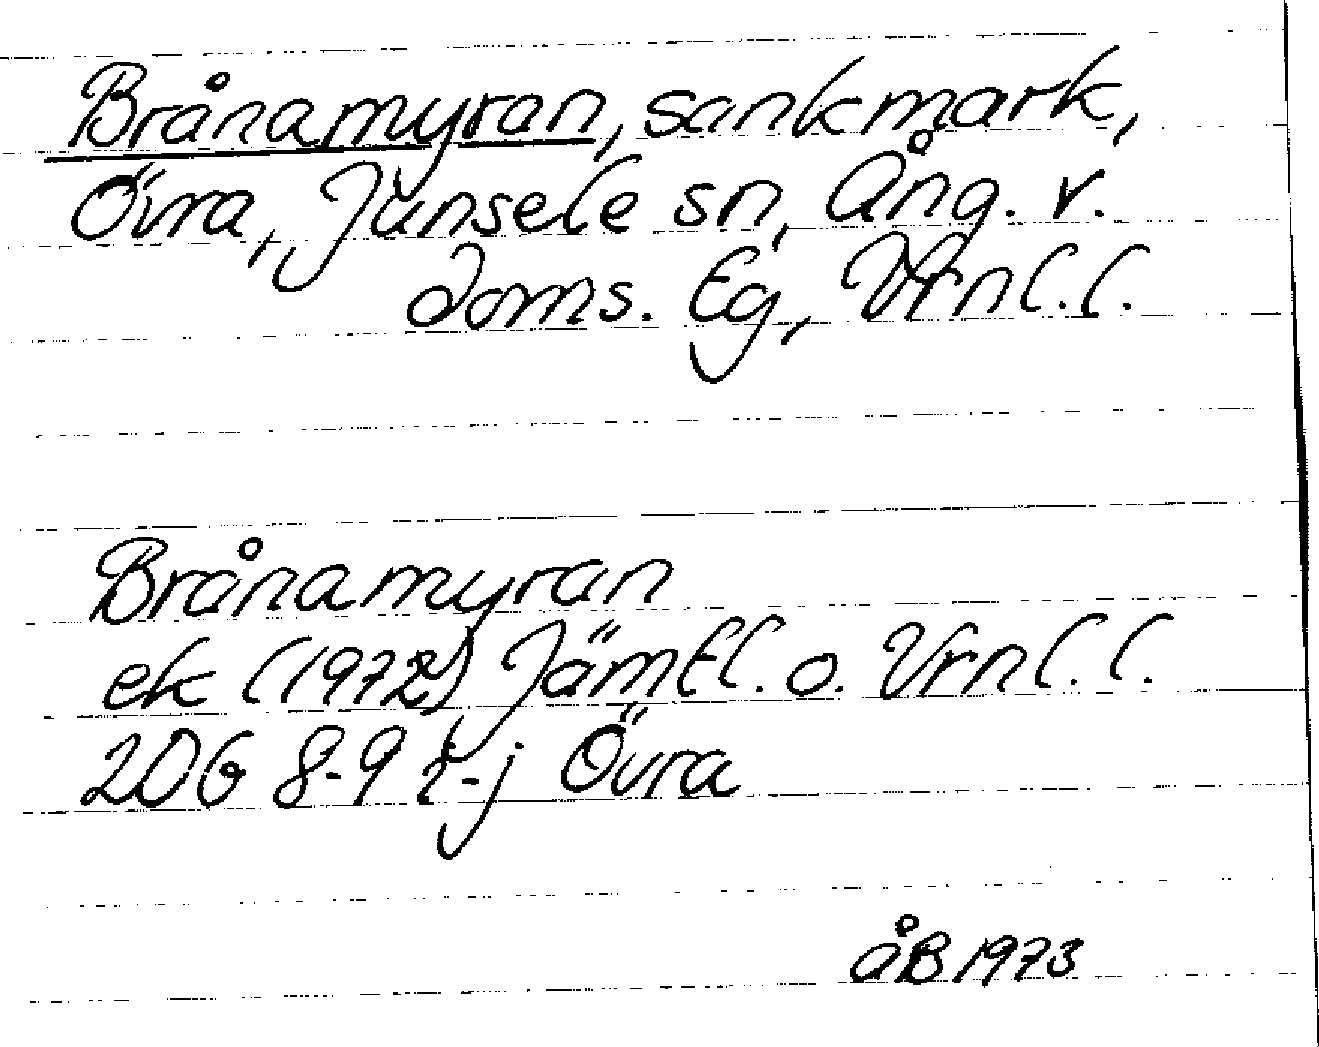 Brånamyran, sankmark,
Övra, Junsele sn, Ång. v.
doms. Eg, Vrnl.l.
Brånamyran
ek (1972) Jämtl. o. Vrnl.l.
20G 8-9 i-j Övra
åB 1973